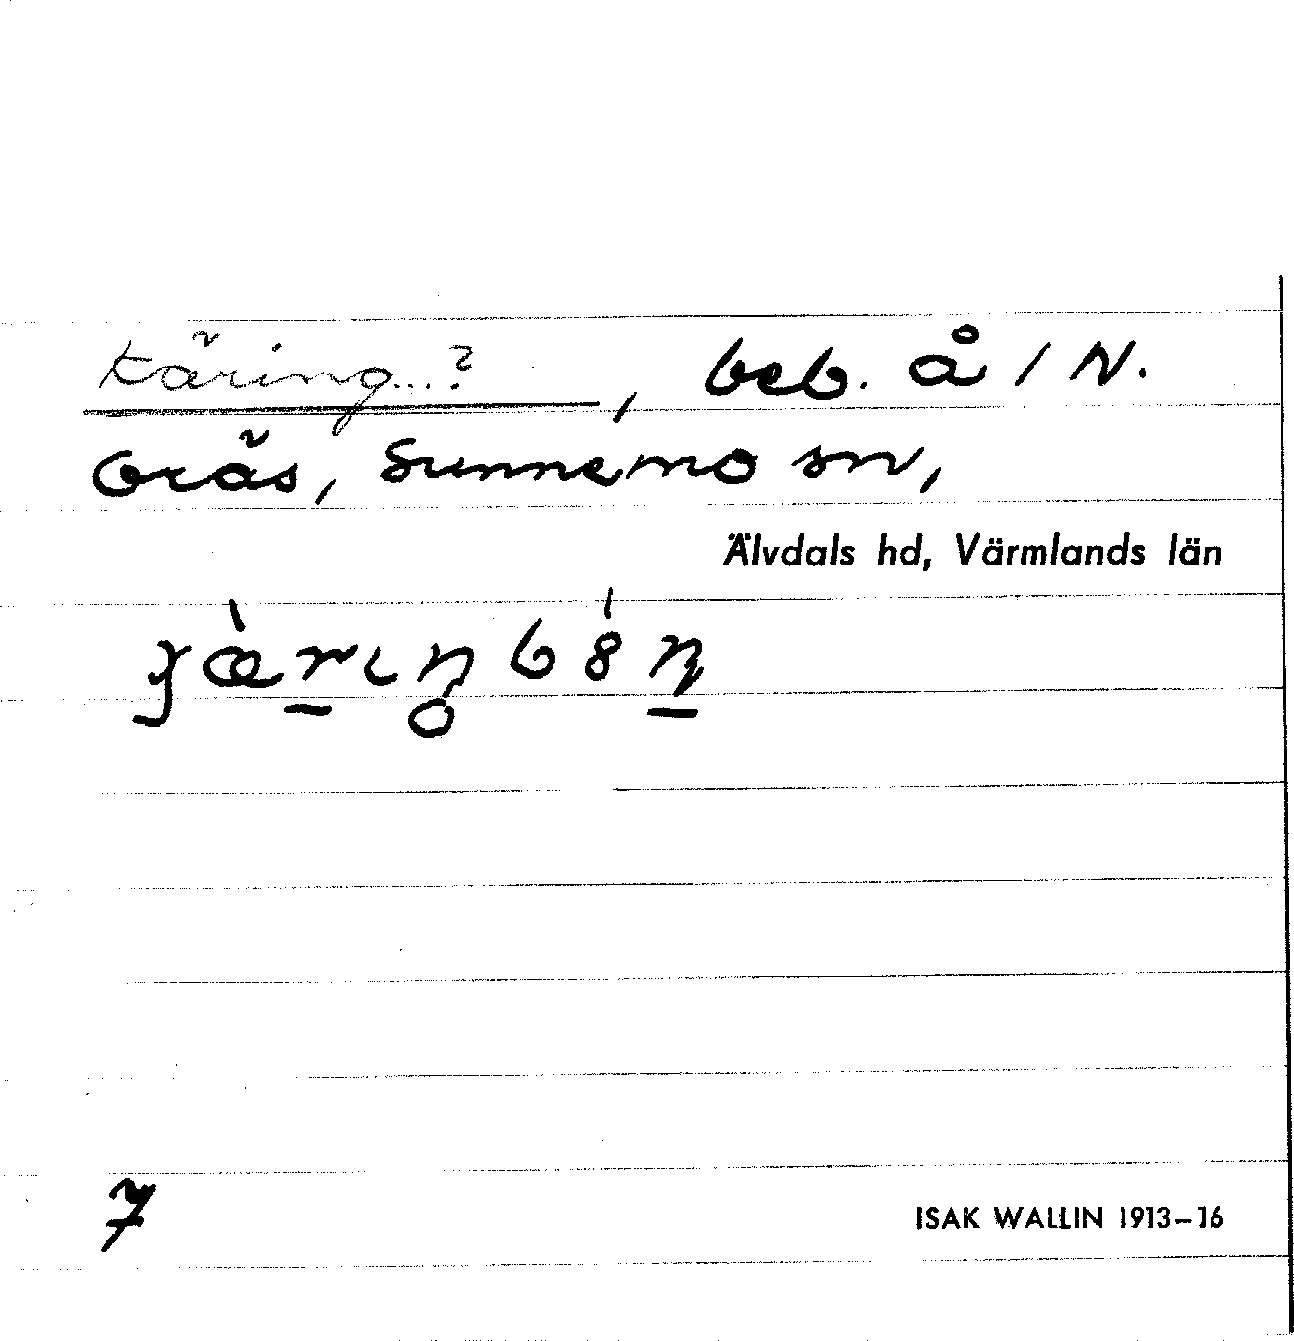 Käring...?, beb. å 1/ N.
Gräs, Sunnemo sn,
Älvdals hd, Värmlands län
7
ISAK WALLIN 1913–16